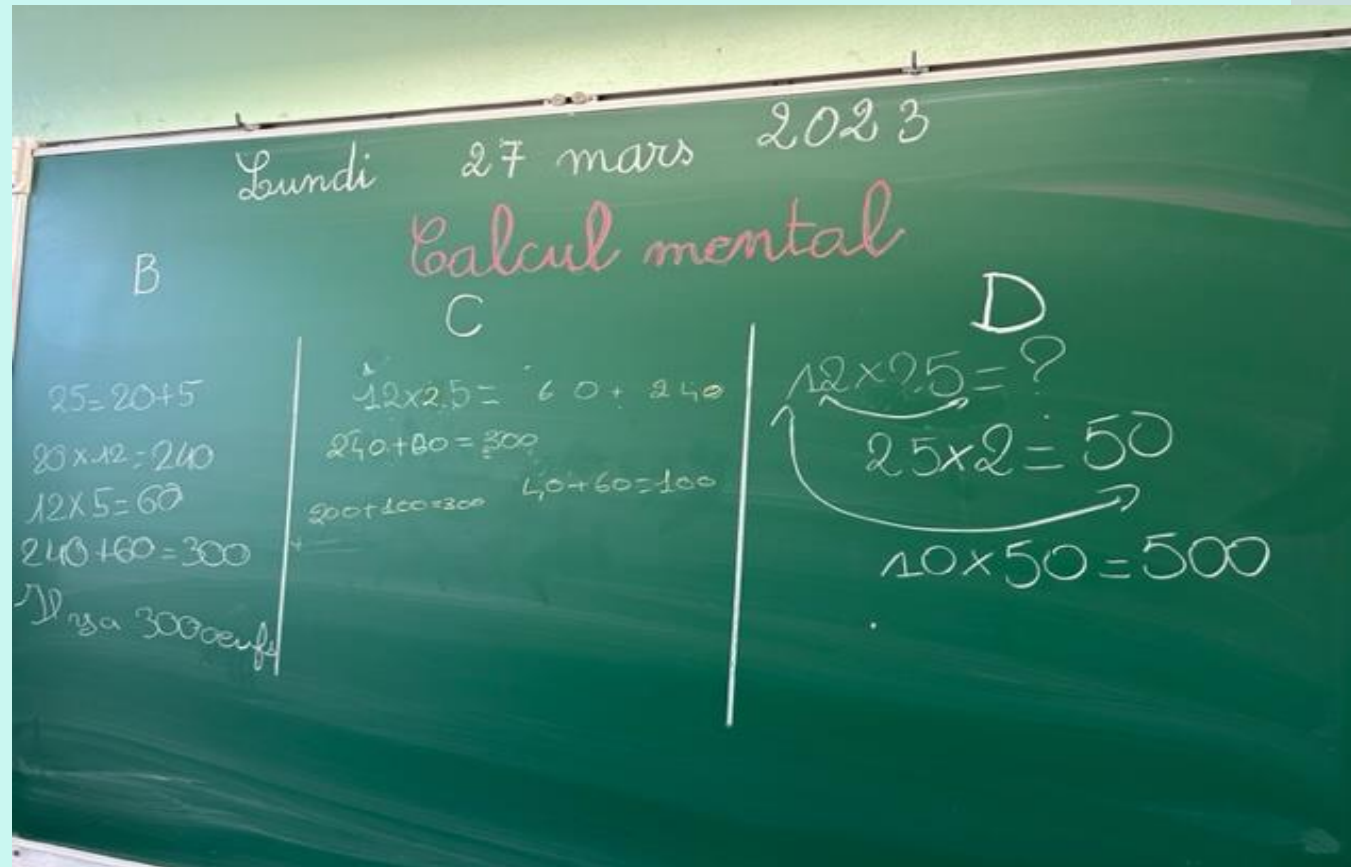 Lundi 27 mars 2023
Calcul mental
B
25=20+5
20×12=240
12×5=60
240+60=300
Il y a 300 oeufs
C
12×25= 60+240
240+60=300
40+60=100
200+100=300
D
12×25=?
25×2=50
10×50=500